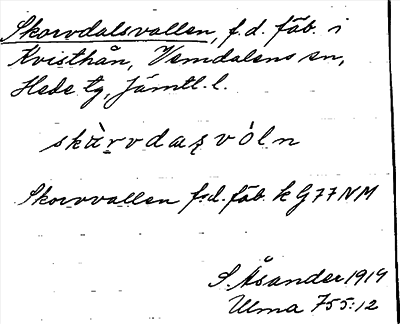 Skorvdalsvallen, f.d. fäb. i
Kvisthån, Vemdalens sn,
Hede tg, Jämtl. l.
skàrvdaʂvòln
Skorvvallen fsd. fäb. k G77NM
S. Åsander 1919
Ulma 755:12